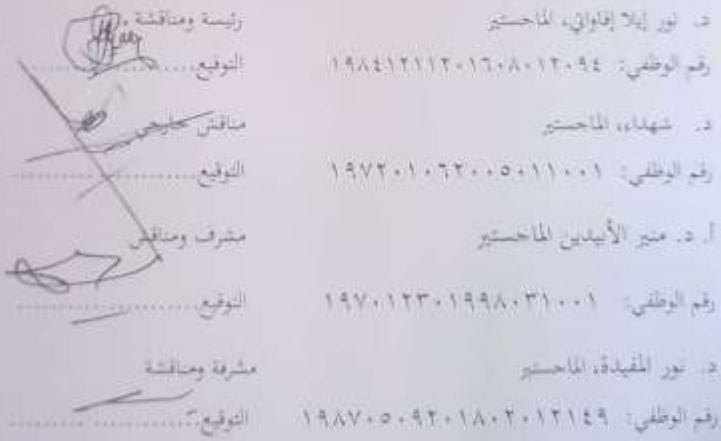 د. نور إيلا إفاواتي، الماجستير رئيسة ومناقشة
رقم الوظفي: ١٩٨٤١٢١١٢٠١٦٠٨٠١٢٠٩٤ التوقيع..............
د. شهداء، الماجستير مناقش خارجي
رقم الوظفي: ١٩٧٢٠١٠٦٢٠٠٥٠١١٠٠١ التوقيع..............
أ. د. منير الأبيدين الماجستير مشرف ومناقش
رقم الوظفي: ١٩٧٠١٢٣٠١٩٩٨٠٣١٠٠١ التوقيع..............
د. نور المفيدة، الماجستير مشرفة ومناقشة
رقم الوظفي: ١٩٨٧٠٥٠٩٢٠١٨٠٢٠١٢١٤٩ التوقيع..............